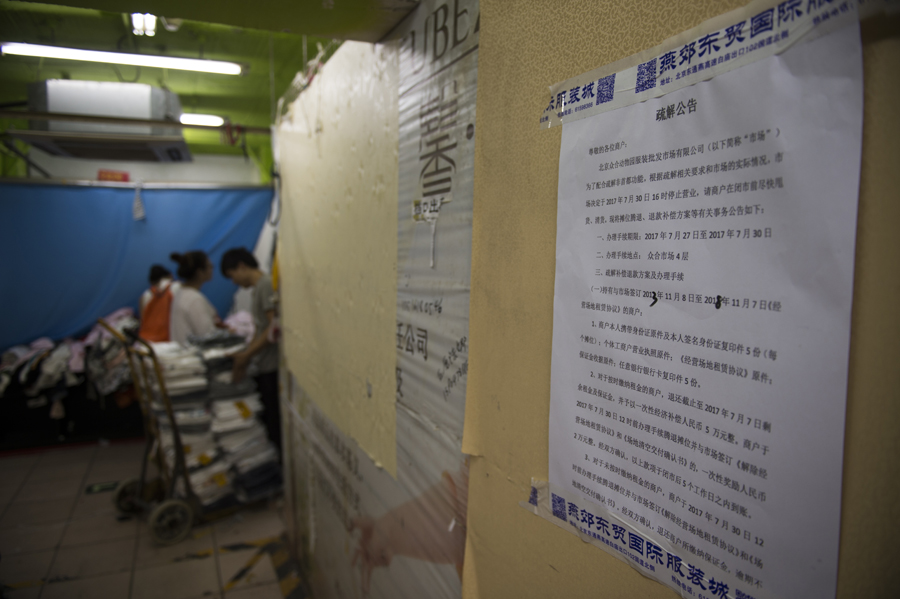 LIBE
任公司
燕郊东贸国际服
服装城
疏解公告
尊敬的各位商户：
北京众合动物园服装批发市场有限公司（以下简称“市场”）
为了配合疏解非首都功能，根据疏解相关要求和市场的实际情况，市
场决定于 2017 年 7 月 30 日 16 时停止营业，请商户在闭市前尽快甩
货、清货，现将摊位腾退、退款补偿方案等有关事务公告如下：
一、办理手续期限：2017 年 7 月 27 日至 2017 年 7 月 30 日
二、办理手续地点： 众合市场 4 层
三、疏解补偿退款方案及办理手续
（一）持有与市场签订 2013 年 11 月 8 日至 2018 年 11 月 7 日《经
营场地租赁协议》的商户：
1、商户本人携带身份证原件及本人签名身份证复印件 5 份（每
个摊位）；个体工商户营业执照原件；《经营场地租赁协议》原件；
保证金收据原件；任意银行银行卡复印件 5 份。
2、对于按时缴纳租金的商户，退还截止至 2017 年 7 月 7 日剩
余租金及保证金，并予以一次性经济补偿人民币 5 万元整。商户于
2017 年 7 月 30 日 12 时前办理手续腾退摊位并与市场签订《解除经
营场地租赁协议》和《场地清空交付确认书》的，一次性奖励人民币
2 万元整。经双方确认，以上款项于闭市后 5 个工作日之内到账。
3、对于未按时缴纳租金的商户，商户于 2017 年 7 月 30 日 12
时前办理手续腾退摊位并与市场签订《解除经营场地租赁协议》和《场
地清空交付确认书》，经双方确认，退还商户所缴纳保证金，逾期不
燕郊东贸国际服装城